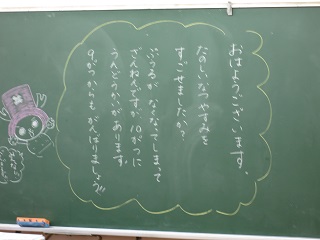 おはようございます。
たのしいなつやすみを
すごせましたか？
ぷうるが なくなってしまって
ざんねんですが、10がつに
うんどうかいがあります。
9がつからも がんばりましょう!!